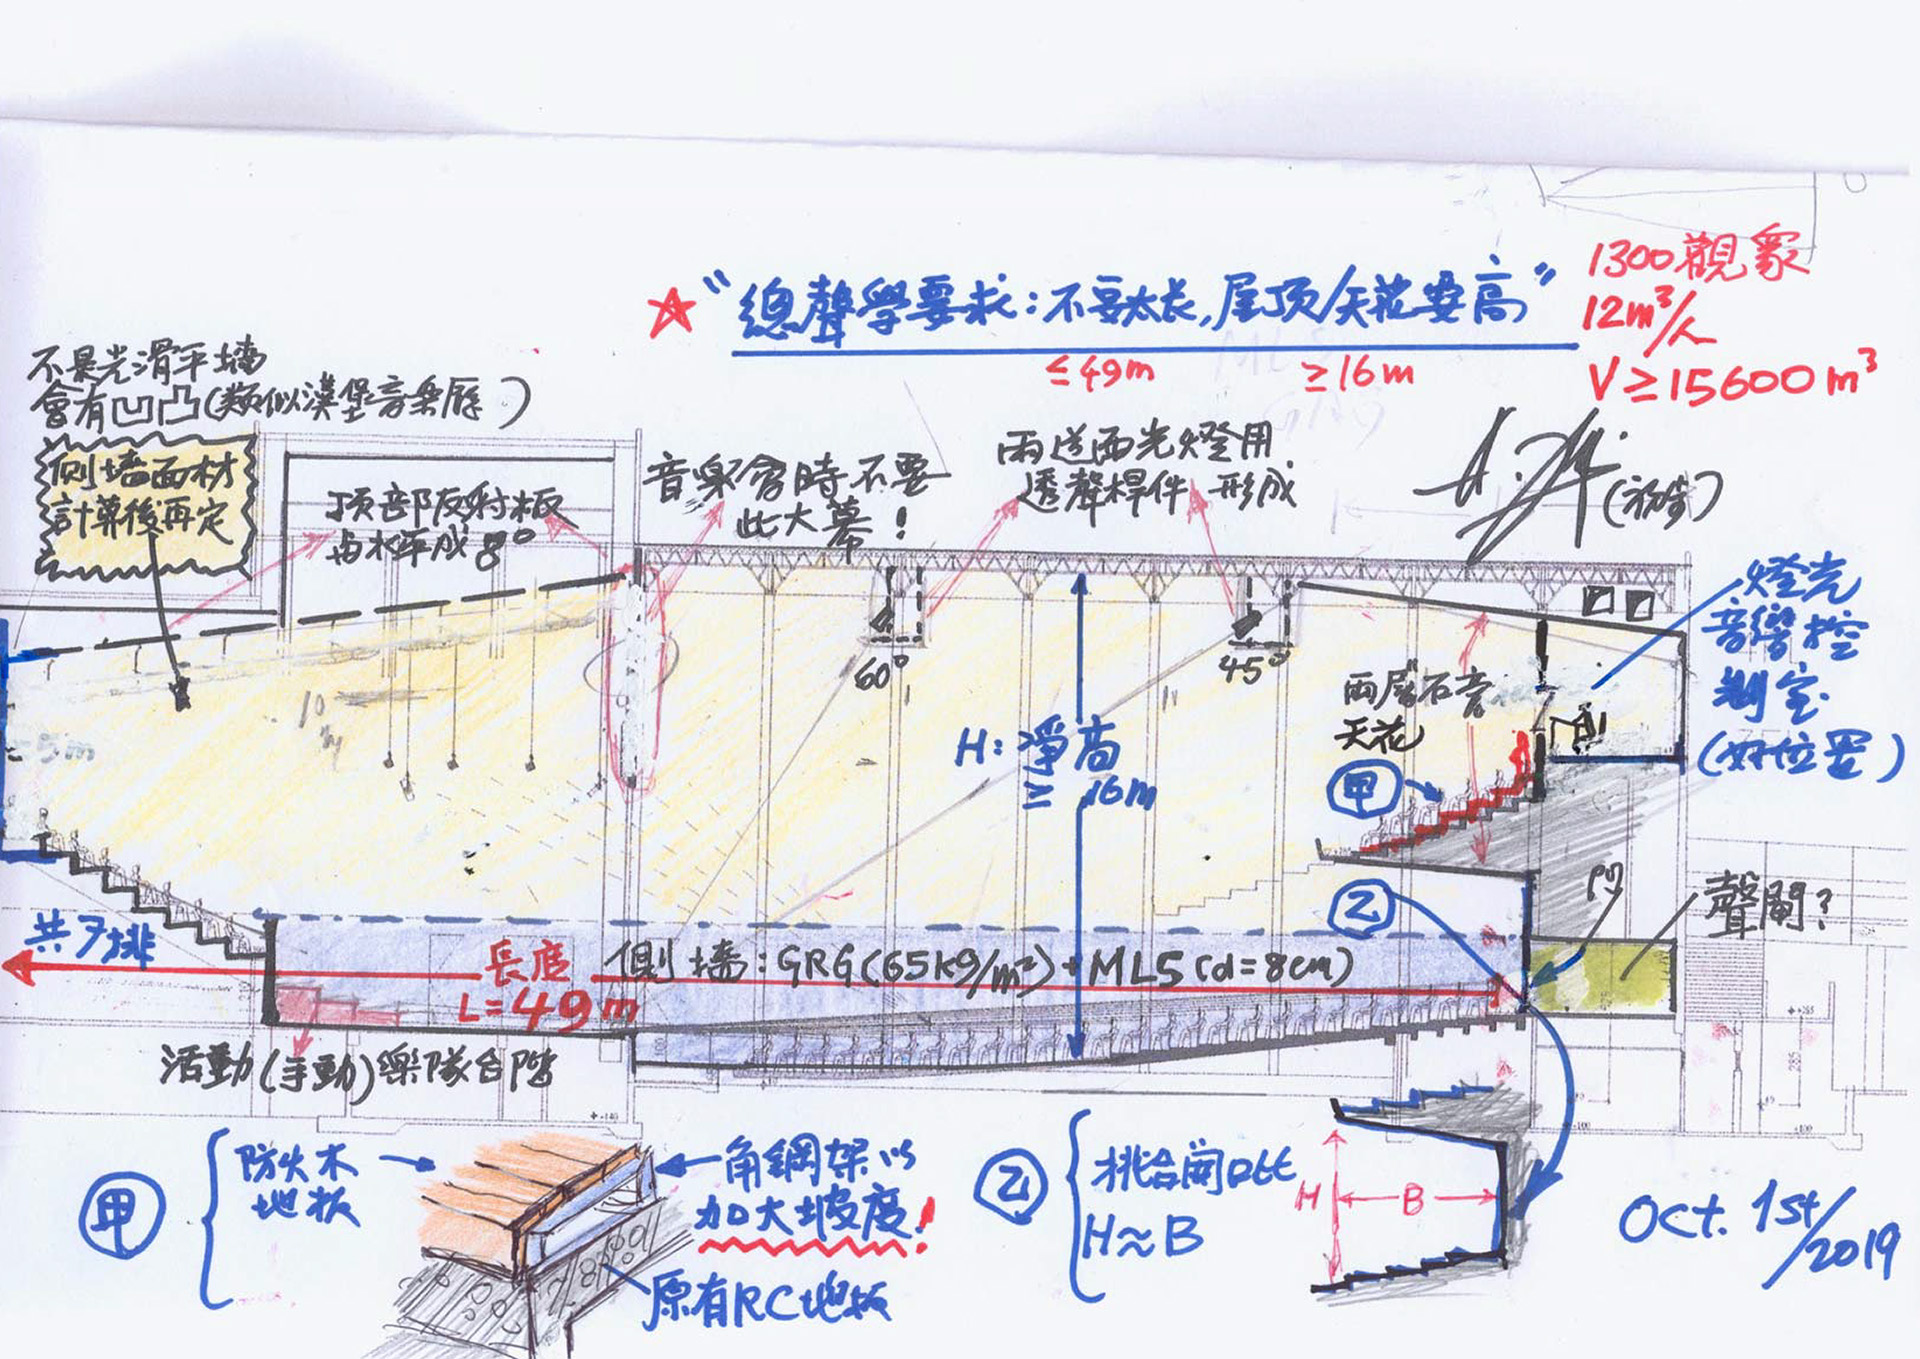 "總聲學要求：不要太长，屋顶/天花要高"
≤49m
≥16m
1300觀眾
12m³/人
V≥15600m³
不是光滑平墙
會有凹凸(類似漢堡音樂廳)
側墙面材
計算後再定
顶部反射板
与水平成8°
音樂會時不要
此大幕！
兩道面光燈用
透聲桿件形成
(初步)
燈光
音響控
制室
(好位置)
60°
45°
兩層石膏
天花
甲
H：淨高
≥16m
乙
凹
聲閘？
共7排
長度
L=49m
側墻：GRG(65kg/m²)+MLS(d=8cm)
活動(手動)樂隊台階
甲
防火木
地板
角鋼架以
加大坡度！
原有RC地板
乙
挑台開口比
H≈B
H
B
Oct. 1st/2019